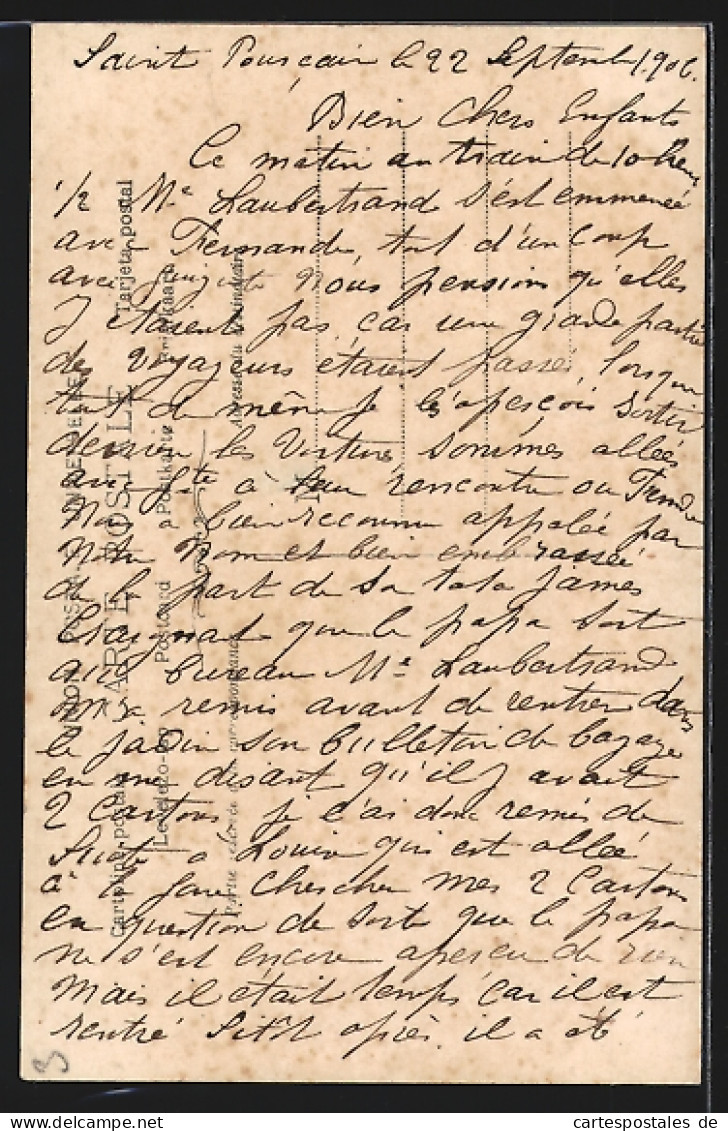 Saint Pourçain le 22 Septembre 1906.
Bien Chers Enfants
Ce matin au train de 10 heures
1/2 Me Laubertrand s'est emmenée
avec Fernande, tout d'un coup
avec Nous pensions qu'elles
y étaient pas car une grande partie
des voyageurs étaient passés, lorsque
tout de même je les aperçois sortir
derrière les voitures, sommes allées
avec à leur rencontre ou
Nous a bien reconnu appelée par
Notre Nom et bien embrassée
de la part de sa tata James
Craignant que le papa sort
au bureau Me Laubertrand
m'a remis avant de rentrer dans
le jardin son bulletin de bagage
en me disant qu'il y avait
2 Cartons je l'ai donc remis de
Suite à Louise qui est allée
à la gare chercher mes 2 Cartons
en question de sorte que le papa
ne s'est encore aperçu de rien
Mais il était temps car il est
rentré Sitôt après, il a été
3
CARTE POSTALE
Tarjeta postal
Postcard
Postkarte
Cartolina postale
cartespostales de